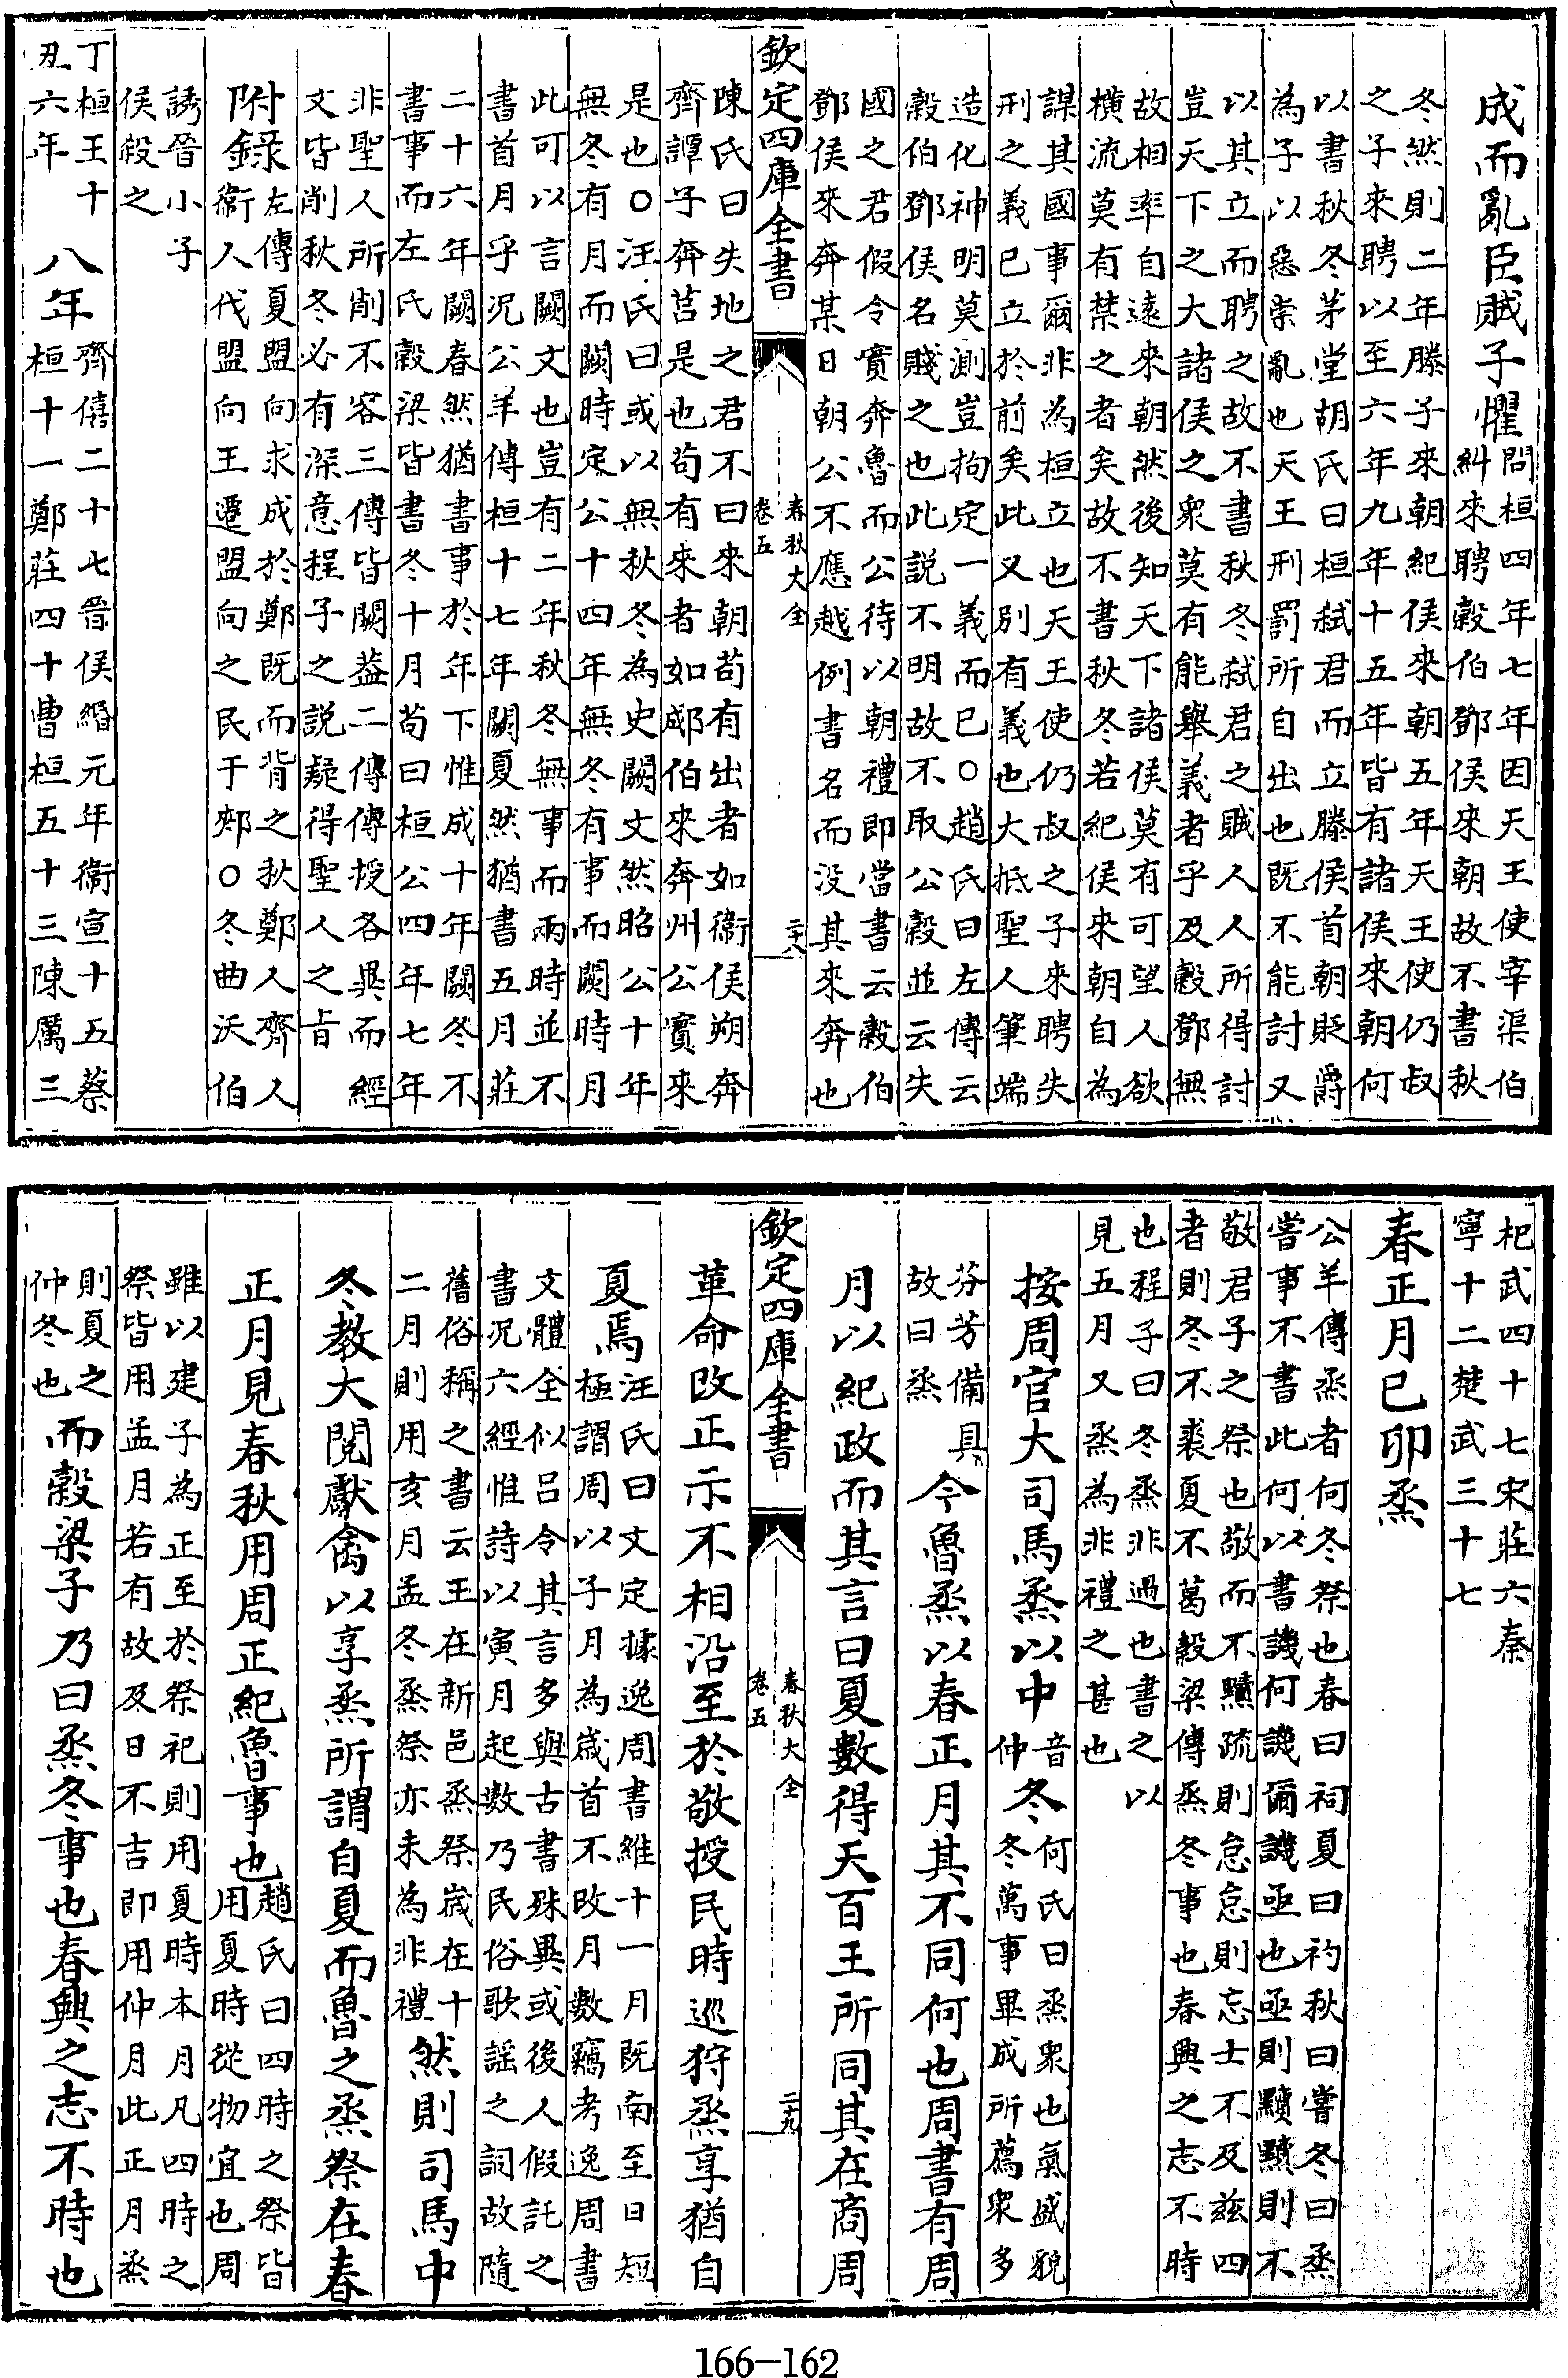 成而亂臣賊子懼
問桓四年七年因天王使宰渠伯
糾來聘穀伯鄧侯來朝故不書秋
冬然則二年滕子來朝紀侯來朝五年天王使仍叔
之子來聘以至六年九年十五年皆有諸侯來朝何
以書秋冬茅堂胡氏曰桓弑君而立滕侯首朝貶爵
為子以惡崇亂也天王刑罰所自出也既不能討又
以其立而聘之故不書秋冬弑君之賊人人所得討
豈天下之大諸侯之衆莫有能舉義者乎及穀鄧無
故相率自遠來朝然後知天下諸侯莫有可望人欲
橫流莫有禁之者矣故不書秋冬若紀侯來朝自為
謀其國事爾非為桓立也天王使仍叔之子來聘失
刑之義已立於前矣此又別有義也大抵聖人筆端
造化神明莫測豈拘定一義而已○趙氏曰左傳云
穀伯鄧侯名賤之也此說不明故不取公穀並云失
國之君假令實奔魯而公待以朝禮即當書云穀伯
鄧侯來奔某日朝公不應越例書名而没其來奔也
欽定四庫全書
春秋大全
卷五
二十八
陳氏曰失地之君不曰來朝苟有出者如衞侯朔奔
齊譚子奔莒是也苟有來者如郕伯來奔州公實來
是也○汪氏曰或以無秋冬為史闕文然昭公十年
無冬有月而闕時定公十四年無冬有事而闕時月
此可以言闕文也豈有二年秋冬無事而兩時並不
書首月乎況公羊傳桓十七年闕夏然猶書五月莊
二十六年闕春然猶書事於年下惟成十年闕冬不
書事而左氏穀梁皆書冬十月苟曰桓公四年七年
非聖人所削不容三傳皆闕蓋二傳傳授各異而經
文皆削秋冬必有深意程子之說疑得聖人之旨
附錄
左傳夏盟向求成於鄭既而背之秋鄭人齊人
衞人伐盟向王遷盟向之民于郟○冬曲沃伯
誘晉小子
侯殺之
丁丑
桓王十
六年
八年
齊僖二十七晉侯緡元年衞宣十五蔡
桓十一鄭莊四十曹桓五十三陳厲三
杞武四十七宋莊六秦
寧十二楚武三十七
春正月己卯烝
公羊傳烝者何冬祭也春曰祠夏曰礿秋曰嘗冬曰烝
嘗事不書此何以書譏何譏爾譏亟也亟則黷黷則不
敬君子之祭也敬而不黷疏則怠怠則忘士不及兹四
者則冬不裘夏不葛穀梁傳烝冬事也春興之志不時
也程子曰冬烝非過也書之以
見五月又烝為非禮之甚也
按周官大司馬烝以中
音
仲
冬
何氏曰烝衆也氣盛貌
冬萬事畢成所薦衆多
芬芳備具
故曰烝
今魯烝以春正月其不同何也周書有周
月以紀政而其言曰夏數得天百王所同其在商周
欽定四庫全書
春秋大全
卷五
二十九
革命改正示不相沿至於敬授民時巡狩烝享猶自
夏焉
汪氏曰文定據逸周書維十一月既南至日短
極謂周以子月為歲首不改月數竊考逸周書
文體全似呂令其言多與古書殊異或後人假託之
書況六經惟詩以寅月起數乃民俗歌謡之詞故隨
舊俗稱之書云王在新邑烝祭歲在十
二月則用亥月孟冬烝祭亦未為非禮
然則司馬中
冬教大閱獻禽以享烝所謂自夏而魯之烝祭在春
正月見春秋用周正紀魯事也
趙氏曰四時之祭皆
用夏時從物宜也周
雖以建子為正至於祭祀則用夏時本月凡四時之
祭皆用孟月若有故及日不吉即用仲月此正月烝
則夏之
仲冬也
而穀梁子乃曰烝冬事也春興之志不時也
166-162